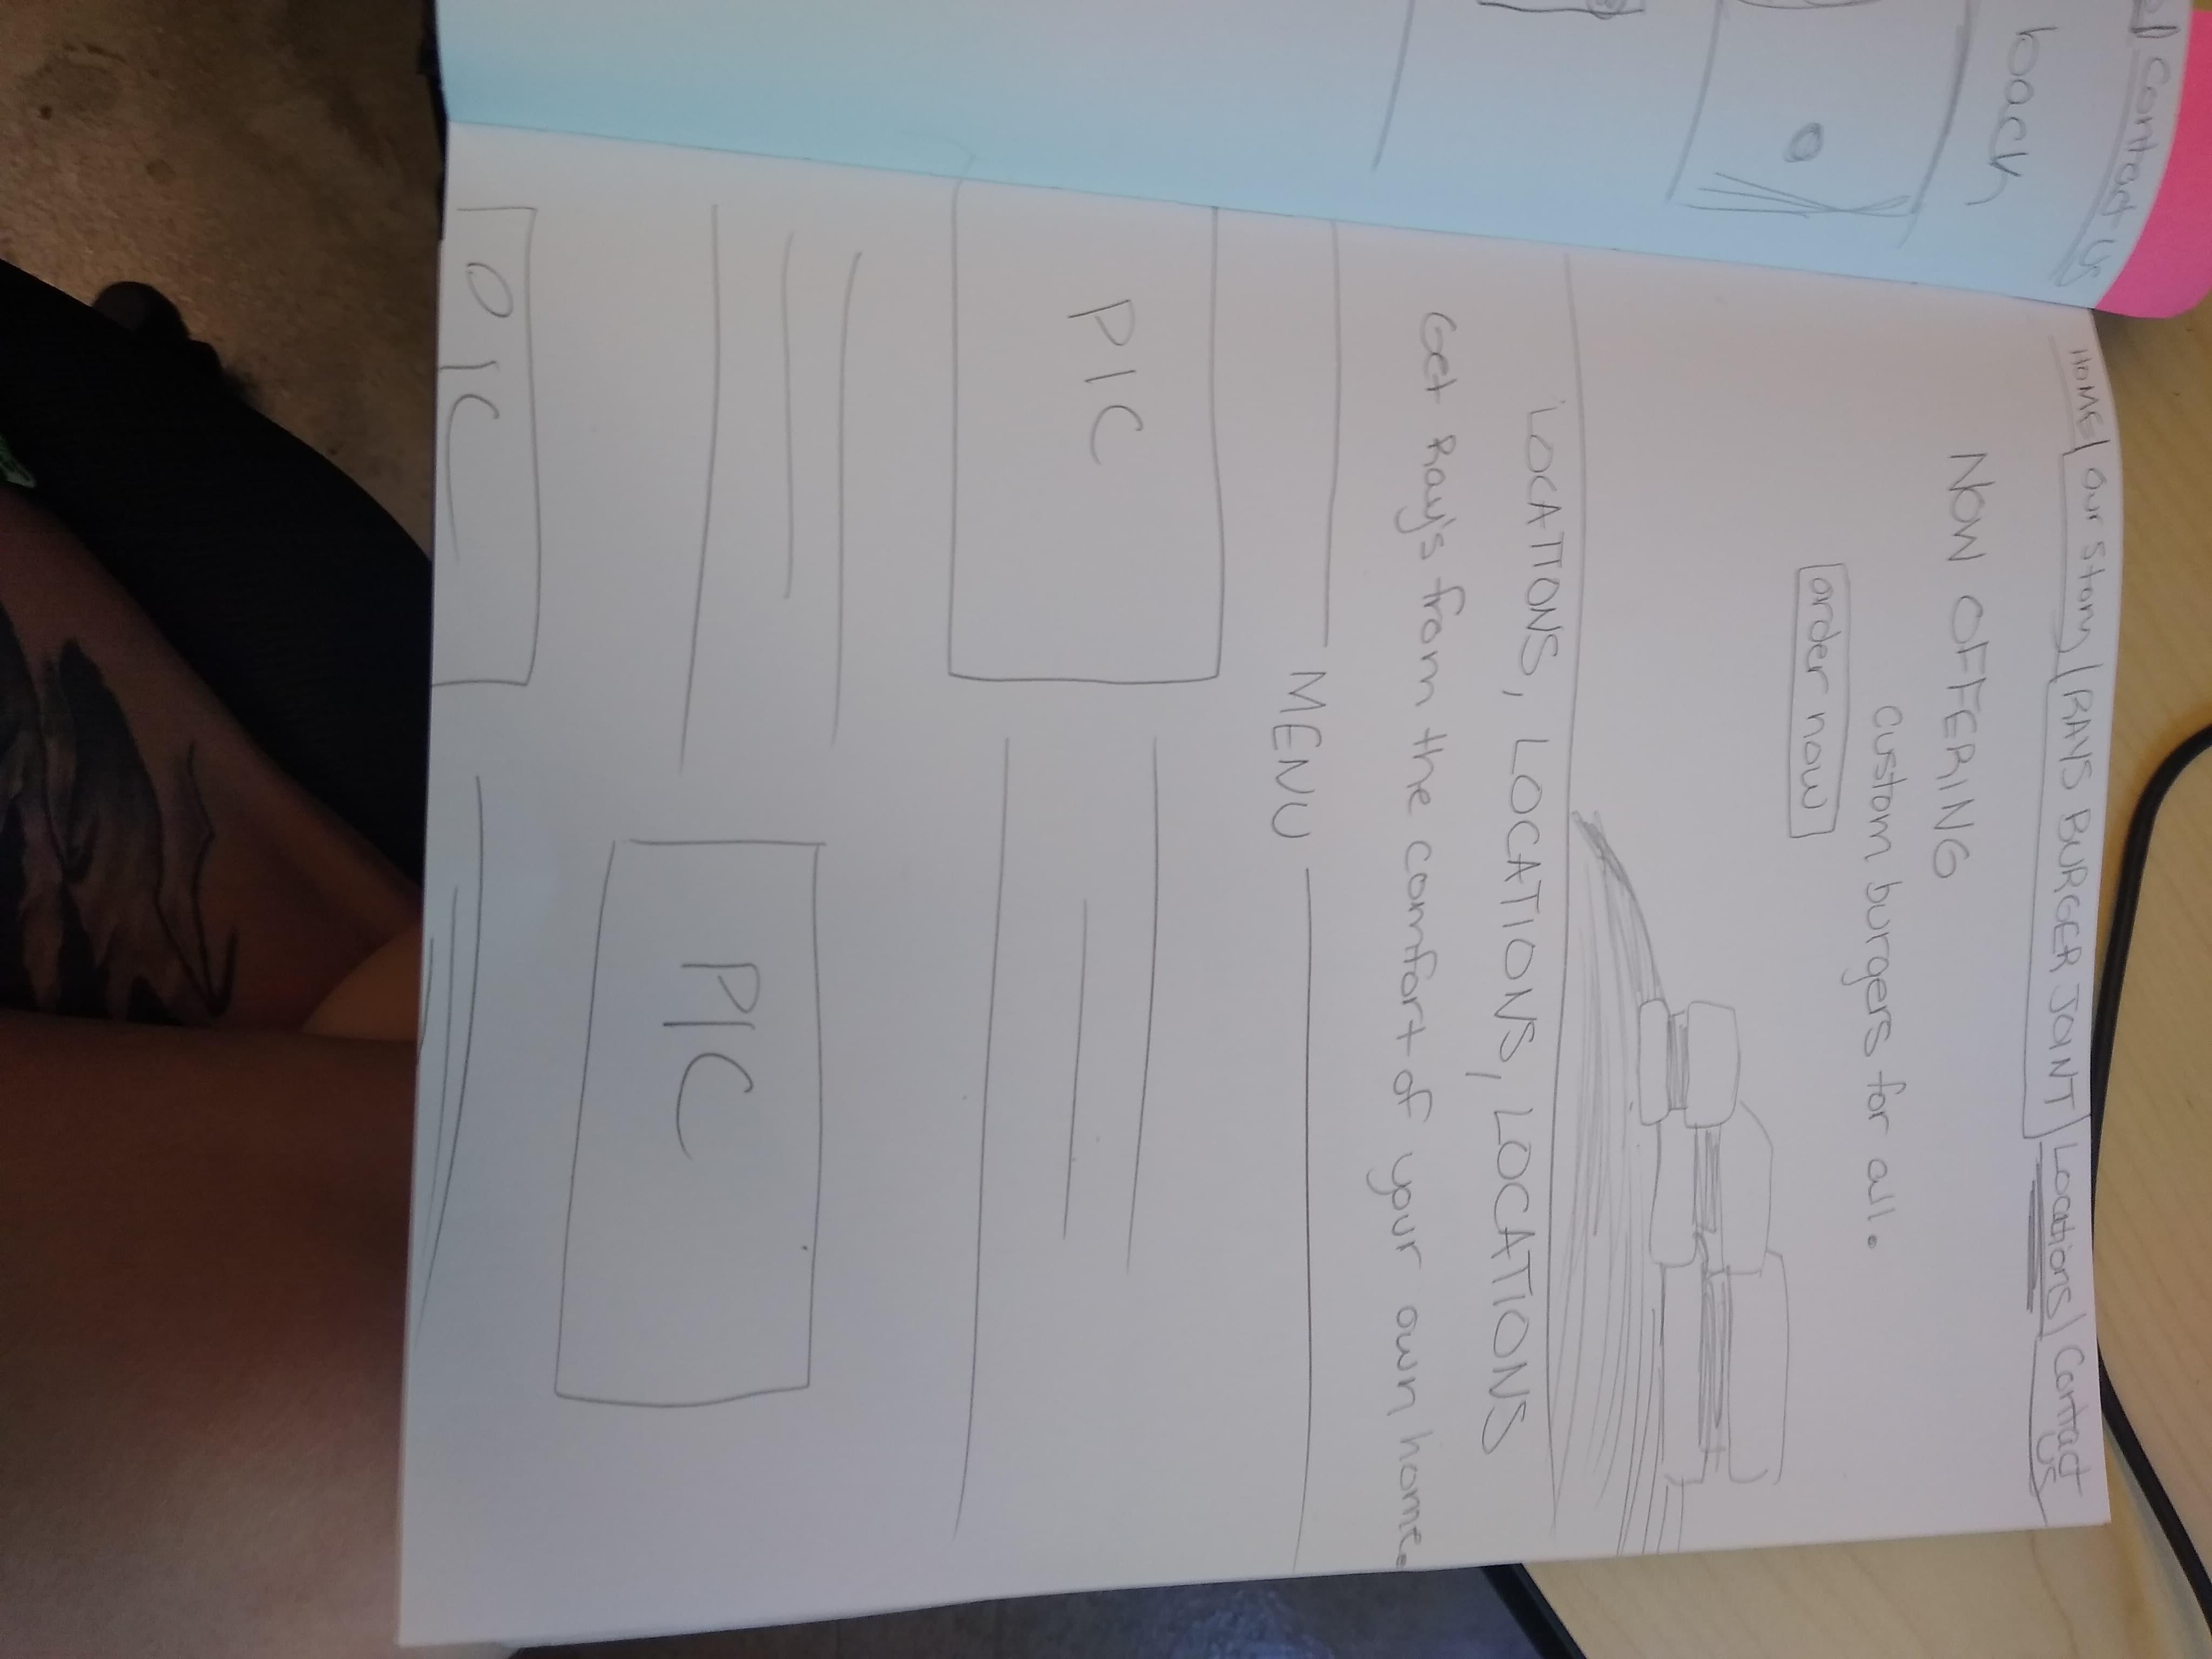 HOME | our story | RAYS BURGER JOINT | Locations | Contact US
NOW OFFERING
custom burgers for all.
order now
LOCATIONS, LOCATIONS, LOCATIONS
Get Ray's from the comfort of your own home.
MENU
PIC
PIC
PIC
Contact US
bach